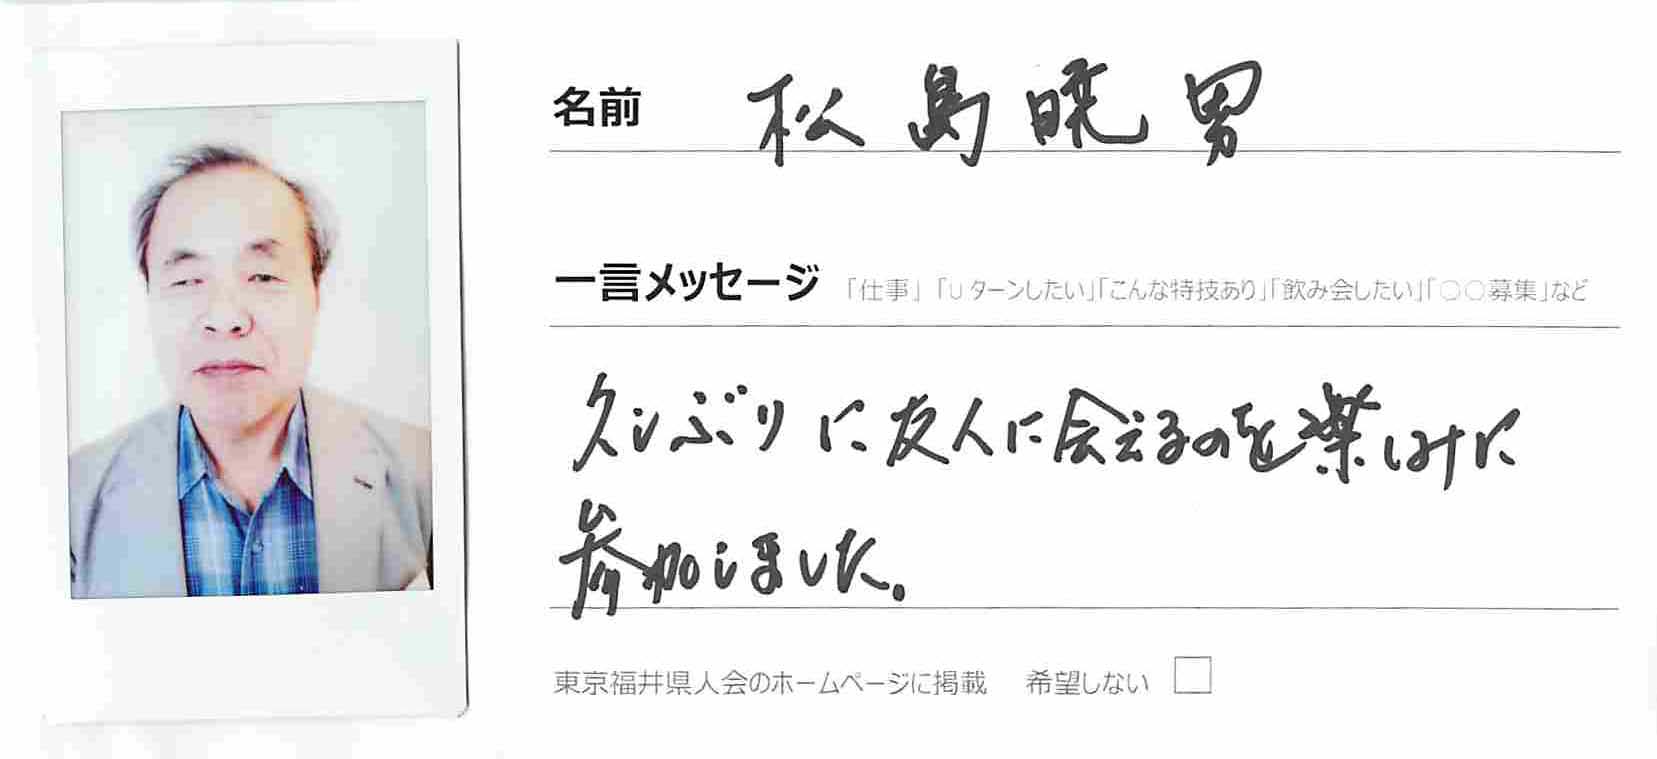 名前 松島暁男
一言メッセージ 「仕事」「Uターンしたい」「こんな特技あり」「飲み会したい」「○○募集」など
久しぶりに友人に会えるのを楽しみに
参加しました。
東京福井県人会のホームページに掲載 希望しない □